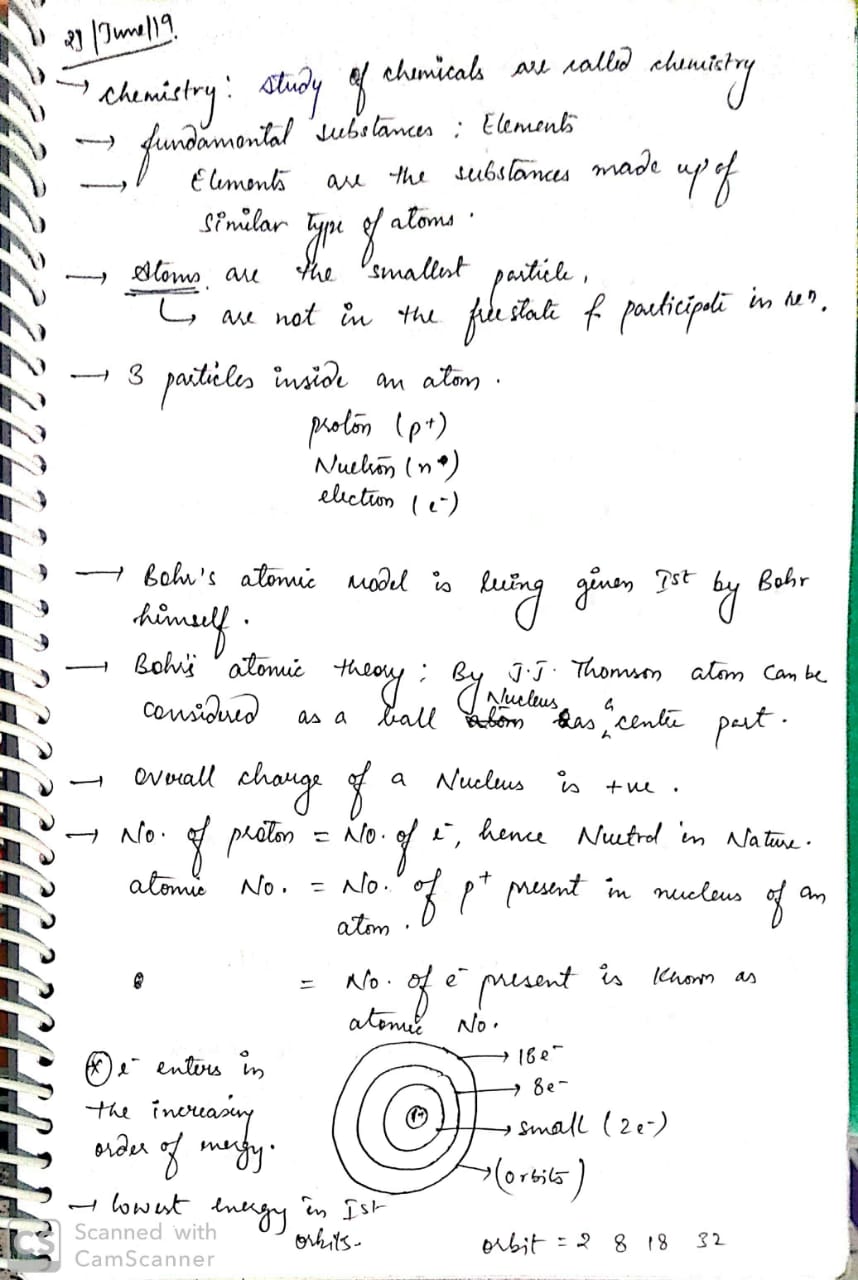 29/June/19.
→ chemistry: study of chemicals are called chemistry
→ fundamontal substances : Elements
→ Elements are the substances made up of
similar type of atoms.
→ Atoms are the smallest particle,
↳ are not in the free state & participate in rxn.
→ 3 particles inside an atom.
proton (p+)
Nuetron (n°)
electron (e-)
→ Bohr's atomic model is being given Ist by Bohr
himself.
→ Bohr's atomic theory: By J.J. Thomson atom can be
considered as a ball Nucleus has a centre part.
→ overall charge of a Nucleus is +ve.
→ No. of proton = No. of e-, hence Nuetral in Nature.
atomic No. = No. of p+ present in nucleus of an
atom.
= No. of e- present is known as
atomic No.
→ 18e-
→ 8e-
→ small (2e-)
→ (orbits)
* e- enters in
the increasing
order of energy.
→ lowest energy in Ist
orbits.
orbit = 2 8 18 32
CS Scanned with
CamScanner